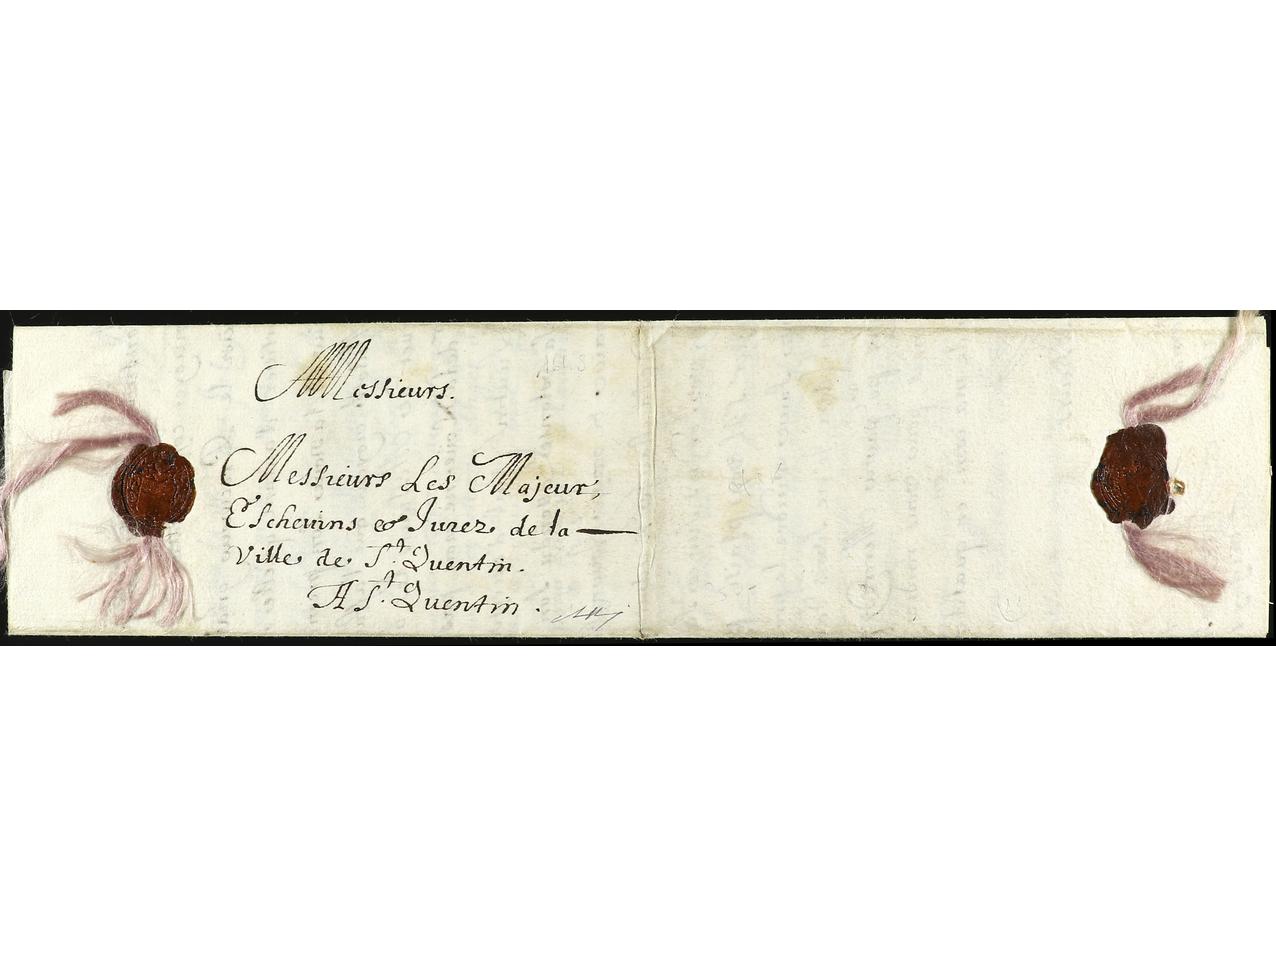 Messieurs.
Messieurs Les Majeur,
Eschevins et Jurez de la
Ville de St. Quentin.
A St. Quentin.